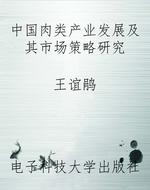 中国肉类产业发展及
其市场策略研究
王谊鹃
电子科技大学出版社